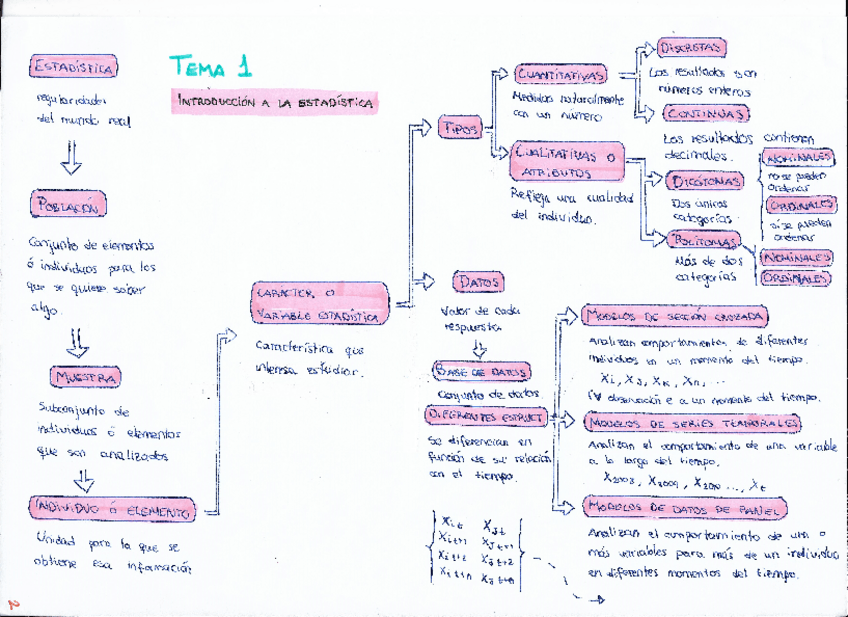 TEMA 1
INTRODUCCIÓN A LA ESTADÍSTICA
ESTADÍSTICA
regularidades
del mundo real
POBLACIÓN
Conjunto de elementos
ó individuos para los
que se quiere saber
algo.
MUESTRA
Subconjunto de
individuos ó elementos
que son analizados
INDIVIDUO ó ELEMENTO
Unidad para la que se
obtiene esa información
CARÁCTER O
VARIABLE ESTADÍSTICA
Característica que
interesa estudiar.
TIPOS
CUANTITATIVAS
Medidas naturalmente
con un número
DISCRETAS
Los resultados son
números enteros
CONTINUAS
Los resultados contienen
decimales.
CUALITATIVAS O
ATRIBUTOS
Refleja una cualidad
del individuo.
DICÓTOMAS
Dos únicas
categorías
NOMINALES
no se pueden
ordenar
ORDINALES
sí se pueden
ordenar
POLÍTOMAS
Más de dos
categorías
NOMINALES
ORDINALES
DATOS
Valor de cada
respuesta
BASE DE DATOS
Conjunto de datos
DIFERENTES ESTRUCT
Se diferencian en
función de su relación
con el tiempo.
MODELOS DE SECCIÓN CRUZADA
Analizan comportamientos de diferentes
individuos en un momento del tiempo.
Xi, XJ, XK, Xn, ...
observación a un momento del tiempo.
MODELOS DE SERIES TEMPORALES
Analizan el comportamiento de una variable
a lo largo del tiempo.
X2008, X2009, X2010 ..., Xt
MODELOS DE DATOS DE PANEL
Analizan el comportamiento de una o
más variables para más de un individuo
en diferentes momentos del tiempo.
Xit XJt
Xit+1 XJt+1
Xit+2 XJt+2
Xit+n XJt+n